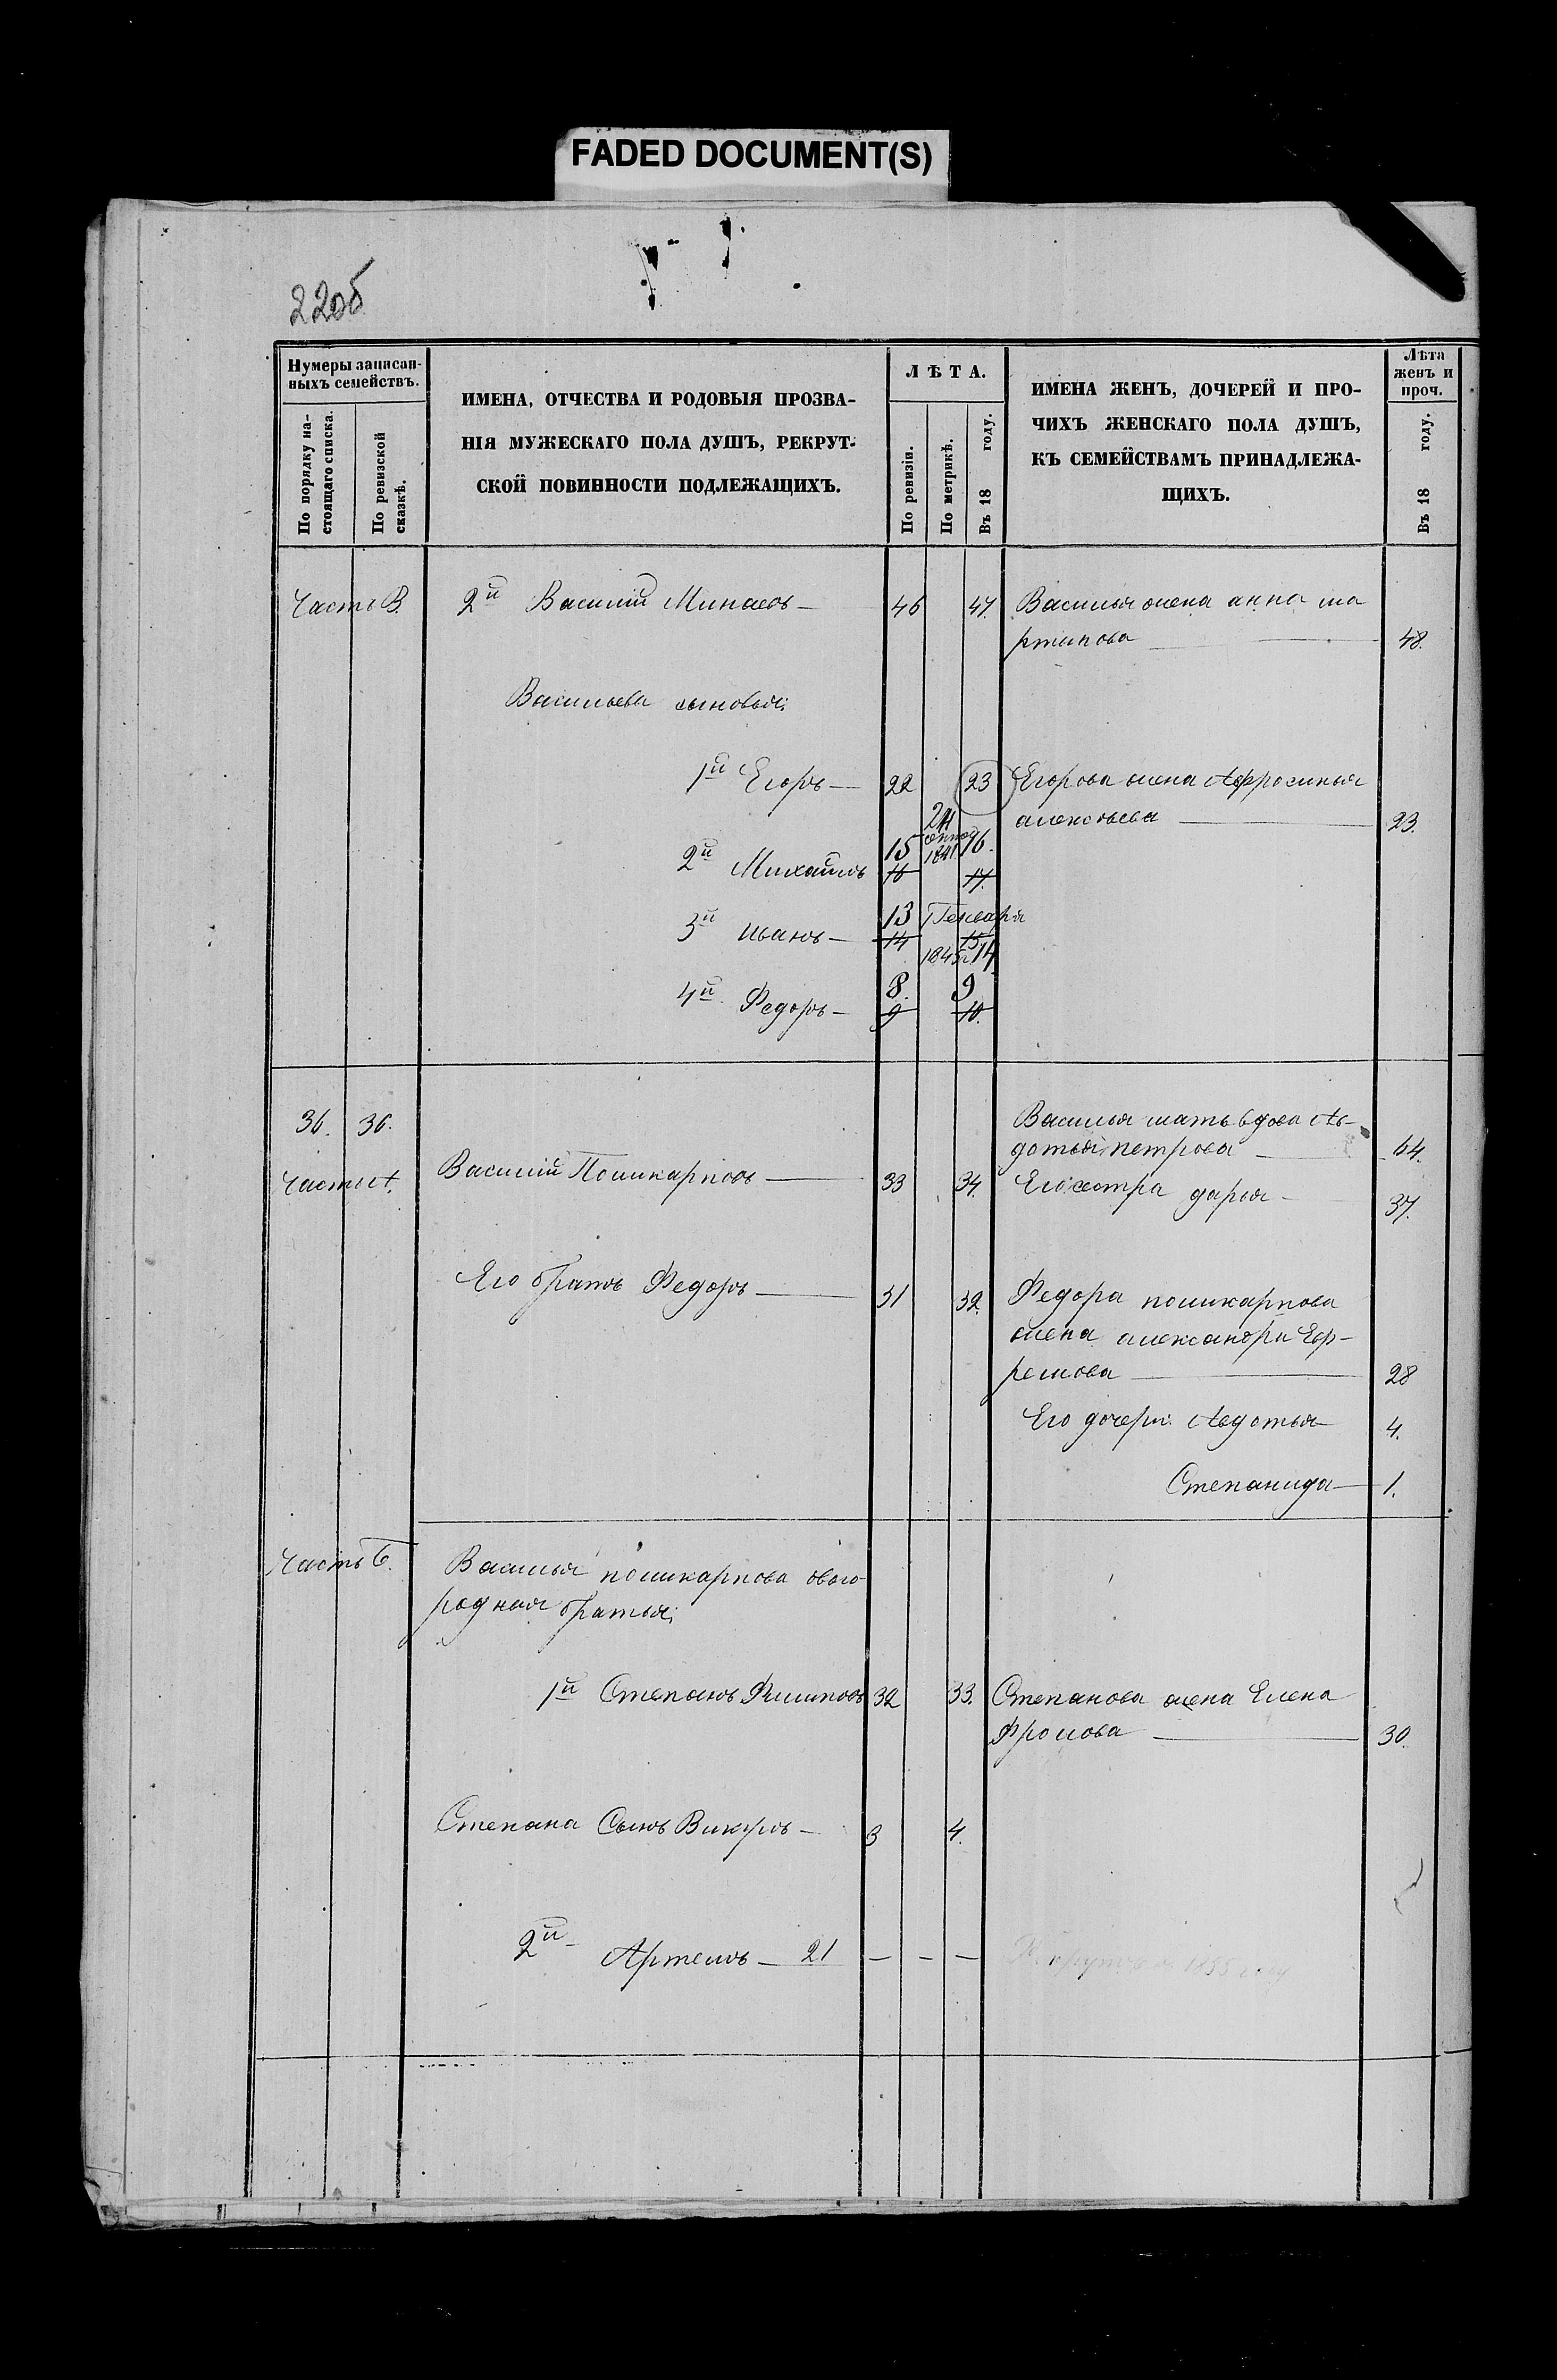 FADED DOCUMENT(S)
22об
Нумеры записан-
ныхъ семействъ.
По порядку на-
стоящаго списка.
По ревизской
сказкѣ.
ИМЕНА, ОТЧЕСТВА И РОДОВЫЯ ПРОЗВА-
НІЯ МУЖЕСКАГО ПОЛА ДУШЪ, РЕКРУТ-
СКОЙ ПОВИННОСТИ ПОДЛЕЖАЩИХЪ.
ЛѢТА.
По ревизіи.
По метрикѣ.
Въ 18 году.
ИМЕНА ЖЕНЪ, ДОЧЕРЕЙ И ПРО-
ЧИХЪ ЖЕНСКАГО ПОЛА ДУШЪ,
КЪ СЕМЕЙСТВАМЪ ПРИНАДЛЕЖА-
ЩИХЪ.
Лѣта
женъ и
проч.
Въ 18 году.
Часть В. 2й Василій Минаевъ — 46 47. Василья жена анна ма
ртинова — 48.
Васильевы сыновья:
1й Егоръ — 22 23 Егорова жена Афросинья
алексѣева — 23.
24
15 1841 16.
2й Михайло 16 17.
13 Генваря
3й иванъ — 14 15
1843 14
8. 9
4й Федоръ — 9 10.
36. 36. Василья мать вдова Ав-
дотья петрова — 64.
Часть А. Василій Поликарповъ — 33 34. Его сестра дарья — 37.
Его братъ Федоръ — 31 32. Федора поликарпова
жена александра Еф-
ремова — 28
Его дочери: Авдотья 4.
Степанида — 1.
Часть Б. Василья поликарпова двою-
родныя братья;
1й Степанъ Филиповъ 32 33. Степанова жена Елена
Фролова — 30.
Степана Сынъ Викулъ — 3 4.
2й Артемъ — 21 — — — 1855 году